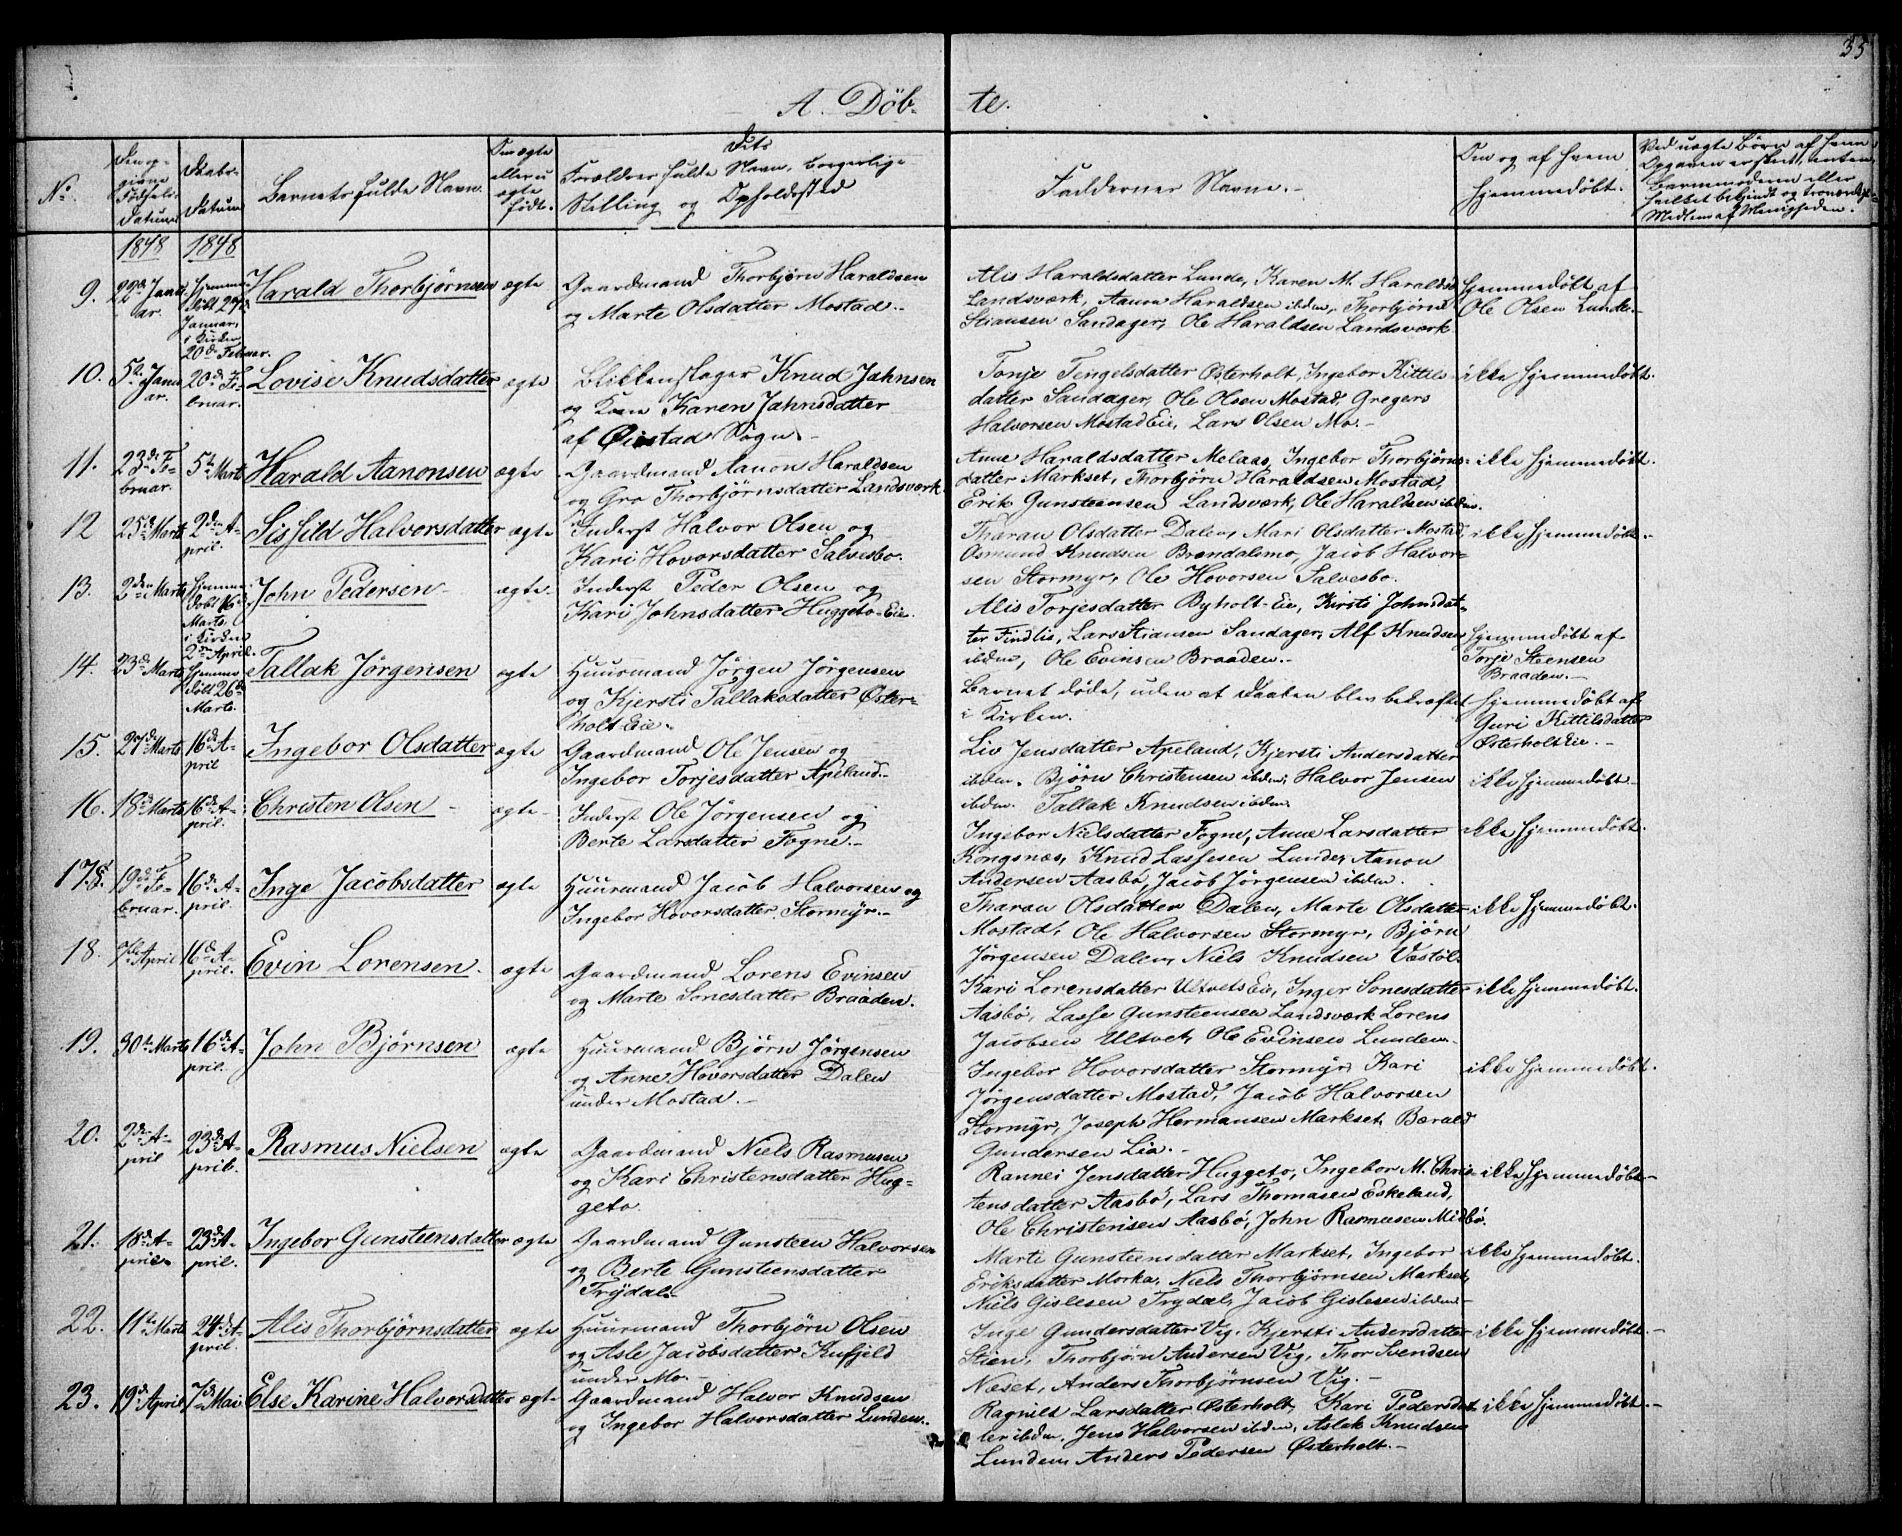 35
A. Döb- te.
No.
Den op-
givne
Födsels-
datum
Daabs-
datum
Barnets fulde Navn.
Om ægte
eller u
ægte
födt.
Forældres fulde Navn, borgerlige
Stilling og Opholdssted
Faddernes Navne.-
Om og af hvem
hjemmedöbt.
Ved uægte Börn af hvem
Opgaven er skeet, enten
Barnemoderen eller
Medlem af Menigheden.
1848 1848
9. 22de Janu-
ar.
Hjemme-
döbt 29de
Januar,
i Kirken
20de Februar.
Harald Thorbjørnsen ægte
Gaardmand Thorbjørn Haraldsen
og Marte Olsdatter Mostad.-
Alis Haraldsdatter Lunde, Karen M. Haralds
Landsværk, Aanon Haraldsen ibdm, Thorbjørn
Stiansen Sandager, Ole Haraldsen Landsværk
Hjemmedöbt af
Ole Olsen Lunde.-
10. 5te Janu
ar.
20de Fe-
bruar.
Lovise Knudsdatter ægte
Blikkenslager Knud Jahnsen
og Kone Karen Jahnsdatter
af Øiestad Sogn.-
Tonje Tengelsdatter Østerholt, Ingebor Kittils-
datter Sandager, Ole Olsen Mostad, Gregers
Halvorsen Mostad Eie, Lars Olsen Mo.-
ikke hjemmedöbt.
11. 23de Fe-
bruar.
5te Marts
Harald Aanonsen ægte
Gaardmand Aanon Haraldsen
og Gro Thorbjørnsdatter Landsværk.
Anne Haraldsdatter Melaas, Ingebor Thorbjørns-
datter Markset, Thorbjørn Haraldsen Mostad,
Erik Gunsteensen Landsværk, Ole Haraldsen ibdm.
ikke hjemmedöbt.
12 25de Marts 2den A-
pril.
Sissild Halvorsdatter ægte
Inderst Halvor Olsen og
Kari Hovorsdatter Salvesbo.
Tharan Olsdatter Dalen, Mari Olsdatter Mostad,
Osmund Knudsen Brendalsmo, Jacob Halvor-
sen Stormyr, Ole Hovorsen Salvesbo.
ikke hjemmedöbt.-
13. 2den Marts
Hjemme-
döbt 16de
Marts,
i Kirken
2den April.
John Pedersen - ægte.
Inderst Peder Olsen og
Kari Johnsdatter Huggeto-Eie.
Alis Torjesdatter Byholt-Eie, Kirsti Johnsdat-
ter Findlis, Lars Stiansen Sandager, Alf Knudsen
ibdm, Ole Evinsen Braaden.-
Hjemmedöbt af
Torje Steensen
Braaden.-
14. 23de Marts
Hjemme-
döbt 26de
Marts.
Tallak Jörgensen ægte
Huusmand Jörgen Jörgensen
og Kjersti Tallaksdatter Øster-
holt Eie.
Barnet döde, uden at Daaben blev bekræftet
i Kirken.
Hjemmedöbt af
Guri Kittilsdatter
Østerholt Eie.-
15. 27de Marts 16de A-
pril
Ingebor Olsdatter ægte
Gaardmand Ole Jensen og
Ingebor Torjesdatter Apeland.-
Liv Jensdatter Apeland, Kjersti Andersdatter
ibdm. Bjørn Christensen ibdm, Halvor Jensen
ibdm. Tallak Knudsen ibdm.
ikke hjemmedöbt-
16. 18de Marts 16de A-
pril.
Christen Olsen - ægte-
Inderst Ole Jörgensen og
Berte Larsdatter Fogne.-
Ingebor Nielsdatter Fogne, Anne Larsdatter
Kongsnæs, Knud Lassesen Lunde, Aanon
Andersen Aasbø, Jacob Jörgensen ibdm.
ikke hjemmedöbt.
17. 19de Fe-
bruar.
16de A-
pril.
Inge Jacobsdatter ægte
Huusmand Jacob Halvorsen og
Ingebor Hovorsdatter Stormyr.-
Tharan Olsdatter Dalen, Marte Olsdatter
Mostad, Ole Halvorsen Stormyr, Bjørn
Jörgensen Dalen, Niels Knudsen Vestöl.
ikke hjemmedöbt.
18. 7de April 16de A-
pril.
Evin Lorensen. ægte
Gaardmand Lorens Evinsen
og Marte Sonesdatter Braaden.
Kari Lorensdatter Ultvets Eie, Inger Sonesdatter
Aasbø, Lasse Gunsteensen Landsværk Lorens
Jacobsen Ultvet, Ole Evinsen Lunden.
ikke hjemmedöbt.
19. 30te Marts 16de A-
pril.
John Bjørnsen ægte
Huusmand Bjørn Jörgensen
og Anne Hovorsdatter Dalen
under Mostad.-
Ingebor Hovorsdatter Stormyr, Kari
Jörgensdatter Mostad, Jacob Halvorsen
Stormyr, Joseph Hermansen Markset, Bærald
Gundersen Lia.-
ikke hjemmedöbt.
20. 2den A-
pril
23de A-
pril.
Rasmus Nielsen ægte
Gaardmand Niels Rasmusen
og Kari Christensdatter Hug-
geto.
Rannei Jensdatter Huggeto, Ingebor M. Chris-
tensdatter Aasbø, Lars Thomasen Eskeland,
Ole Christensen Aasbø, John Rasmusen Midbø.
ikke hjemmedöbt-
21. 18de A-
pril
23de A-
pril.
Ingebor Gunsteensdatter ægte
Gaardmand Gunsteen Halvorsen
og Berte Gunsteensdatter
Trydal.
Marte Gunsteensdatter Markset, Ingebor
Eriksdatter Morka, Niels Thorbjørnsen Markset,
Niels Gislesen Trydal, Jacob Gislesen ibdm-
ikke hjemmedöbt.
22. 11te Marts 24de A-
pril.
Alis Thorbjørnsdatter ægte
Huusmand Thorbjørn Olsen
og Asle Jacobsdatter Kufjeld
under Mo.-
Inge Gundersdatter Vig, Kjersti Andersdatter
Stien, Thorbjørn Andersen Vig, Thor Svendsen
Næset, Anders Thorbjørnsen Vig.-
ikke hjemmedöbt.-
23. 19de April 7de Mai
Else Karine Halvorsdatter ægte
Gaardmand Halvor Knudsen
og Ingebor Halvorsdatter Lunden.
Ragnild Larsdatter Østerholt, Kari Pedersdat-
ter ibdm, Jens Halvorsen ibdm, Aslak Knudsen
Lunden, Anders Pedersen Østerholt.-
ikke hjemmedöbt.-